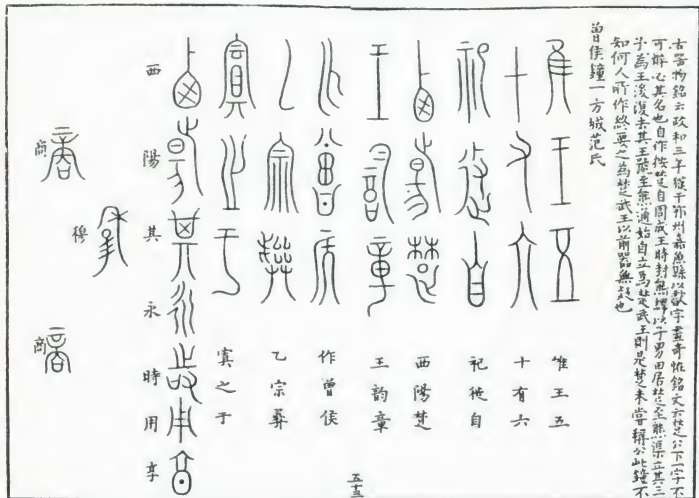 古器物銘云政和三年獲于鄂州嘉魚縣以獻字畫奇怪銘文云楚公下一字不
可辨必其名也自作按楚自周成王時封熊繹以子男田居楚至熊渠立其三
子為王後復去其王號至熊通始自立為楚武王則是楚未嘗稱公此鐘不
知何人所作終要之為楚武王以前器無疑也
曾侯鐘一方城范氏
惟王五
十有六
祀徙自
西陽楚
王韵章
作曾侯
乙宗彝
寘之于
西陽其永時用享
穆
商
商
五十三